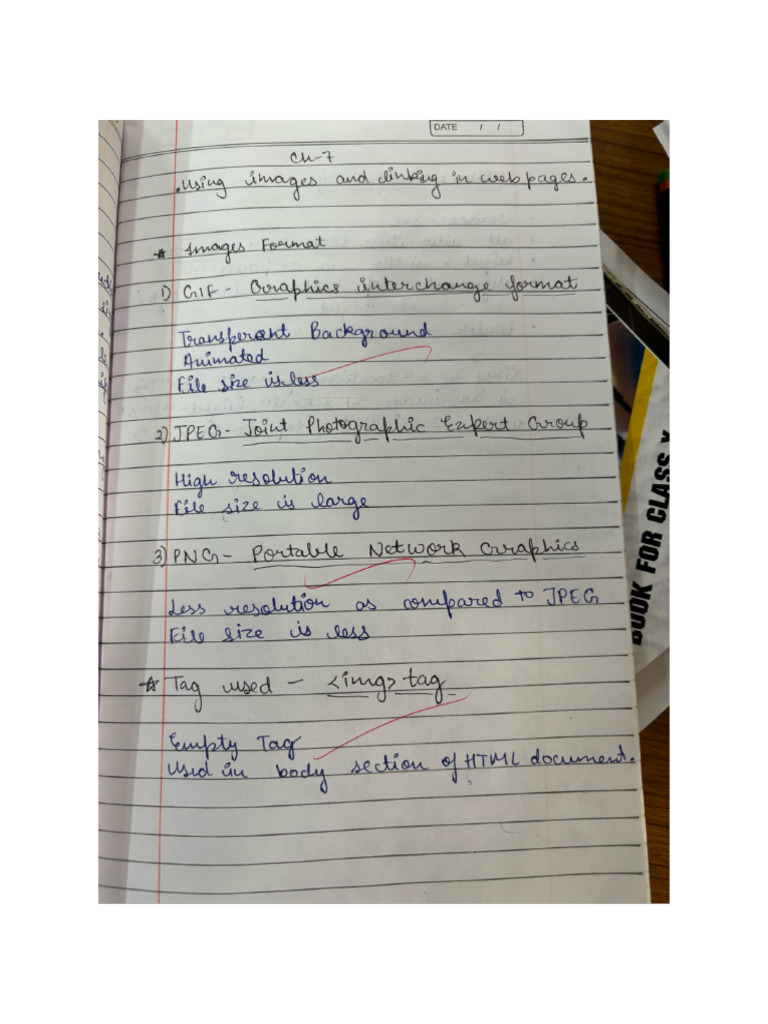 DATE / /
Ch-7
. Using images and linking in web pages.
* Images Format
1) GIF - Graphics interchange format
Transperant Background
Animated
File size is less
2) JPEG - Joint Photographic Expert Group
High resolution
File size is large
3) PNG - Portable Network Graphics
Less resolution as compared to JPEG
File size is less
* Tag used - <img> tag
Empty Tag
Used in body section of HTML document.
BOOK FOR CLASS X